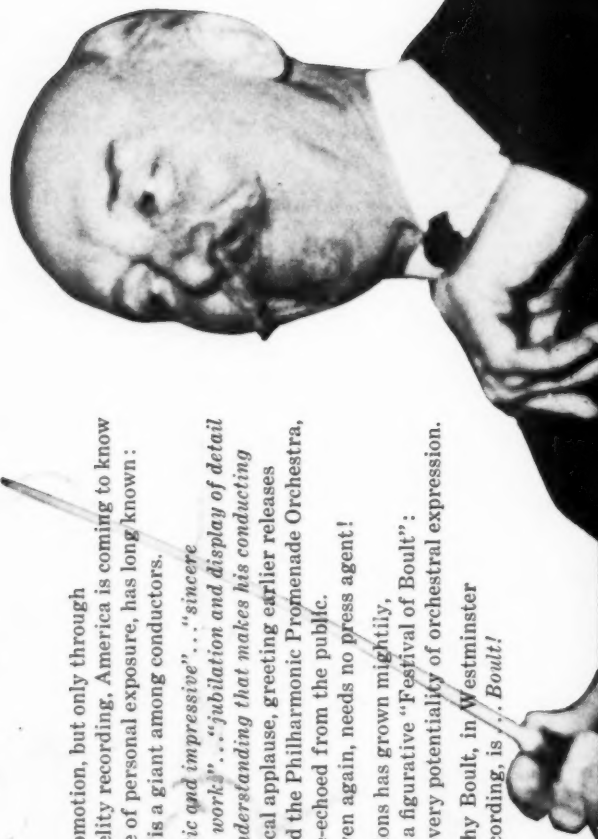 motion, but only through
elity recording, America is coming to know
e of personal exposure, has long known:
is a giant among conductors.
ic and impressive"..."sincere
works"..."jubilation and display of detail
nderstanding that makes his conducting
cal applause, greeting earlier releases
d the Philharmonic Promenade Orchestra,
-echoed from the public.
en again, needs no press agent!
ons has grown mightily,
a figurative "Festival of Boult":
very potentiality of orchestral expression.
hy Boult, in Westminster
cording, is ... Boult!